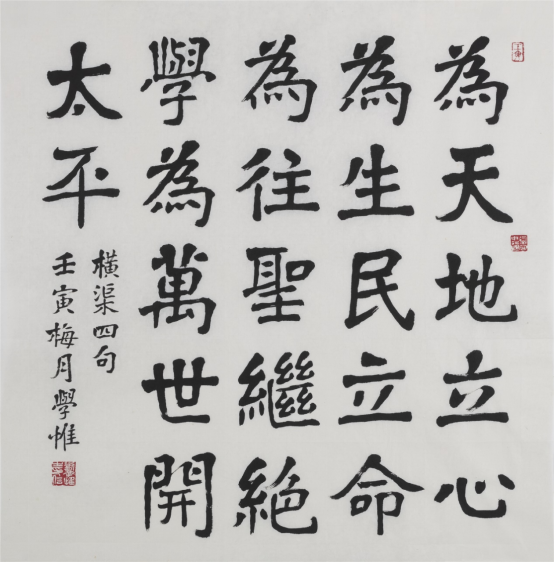 為天地立心
為生民立命
為往聖繼絕
學為萬世開
太平
橫渠四句
壬寅梅月學惟